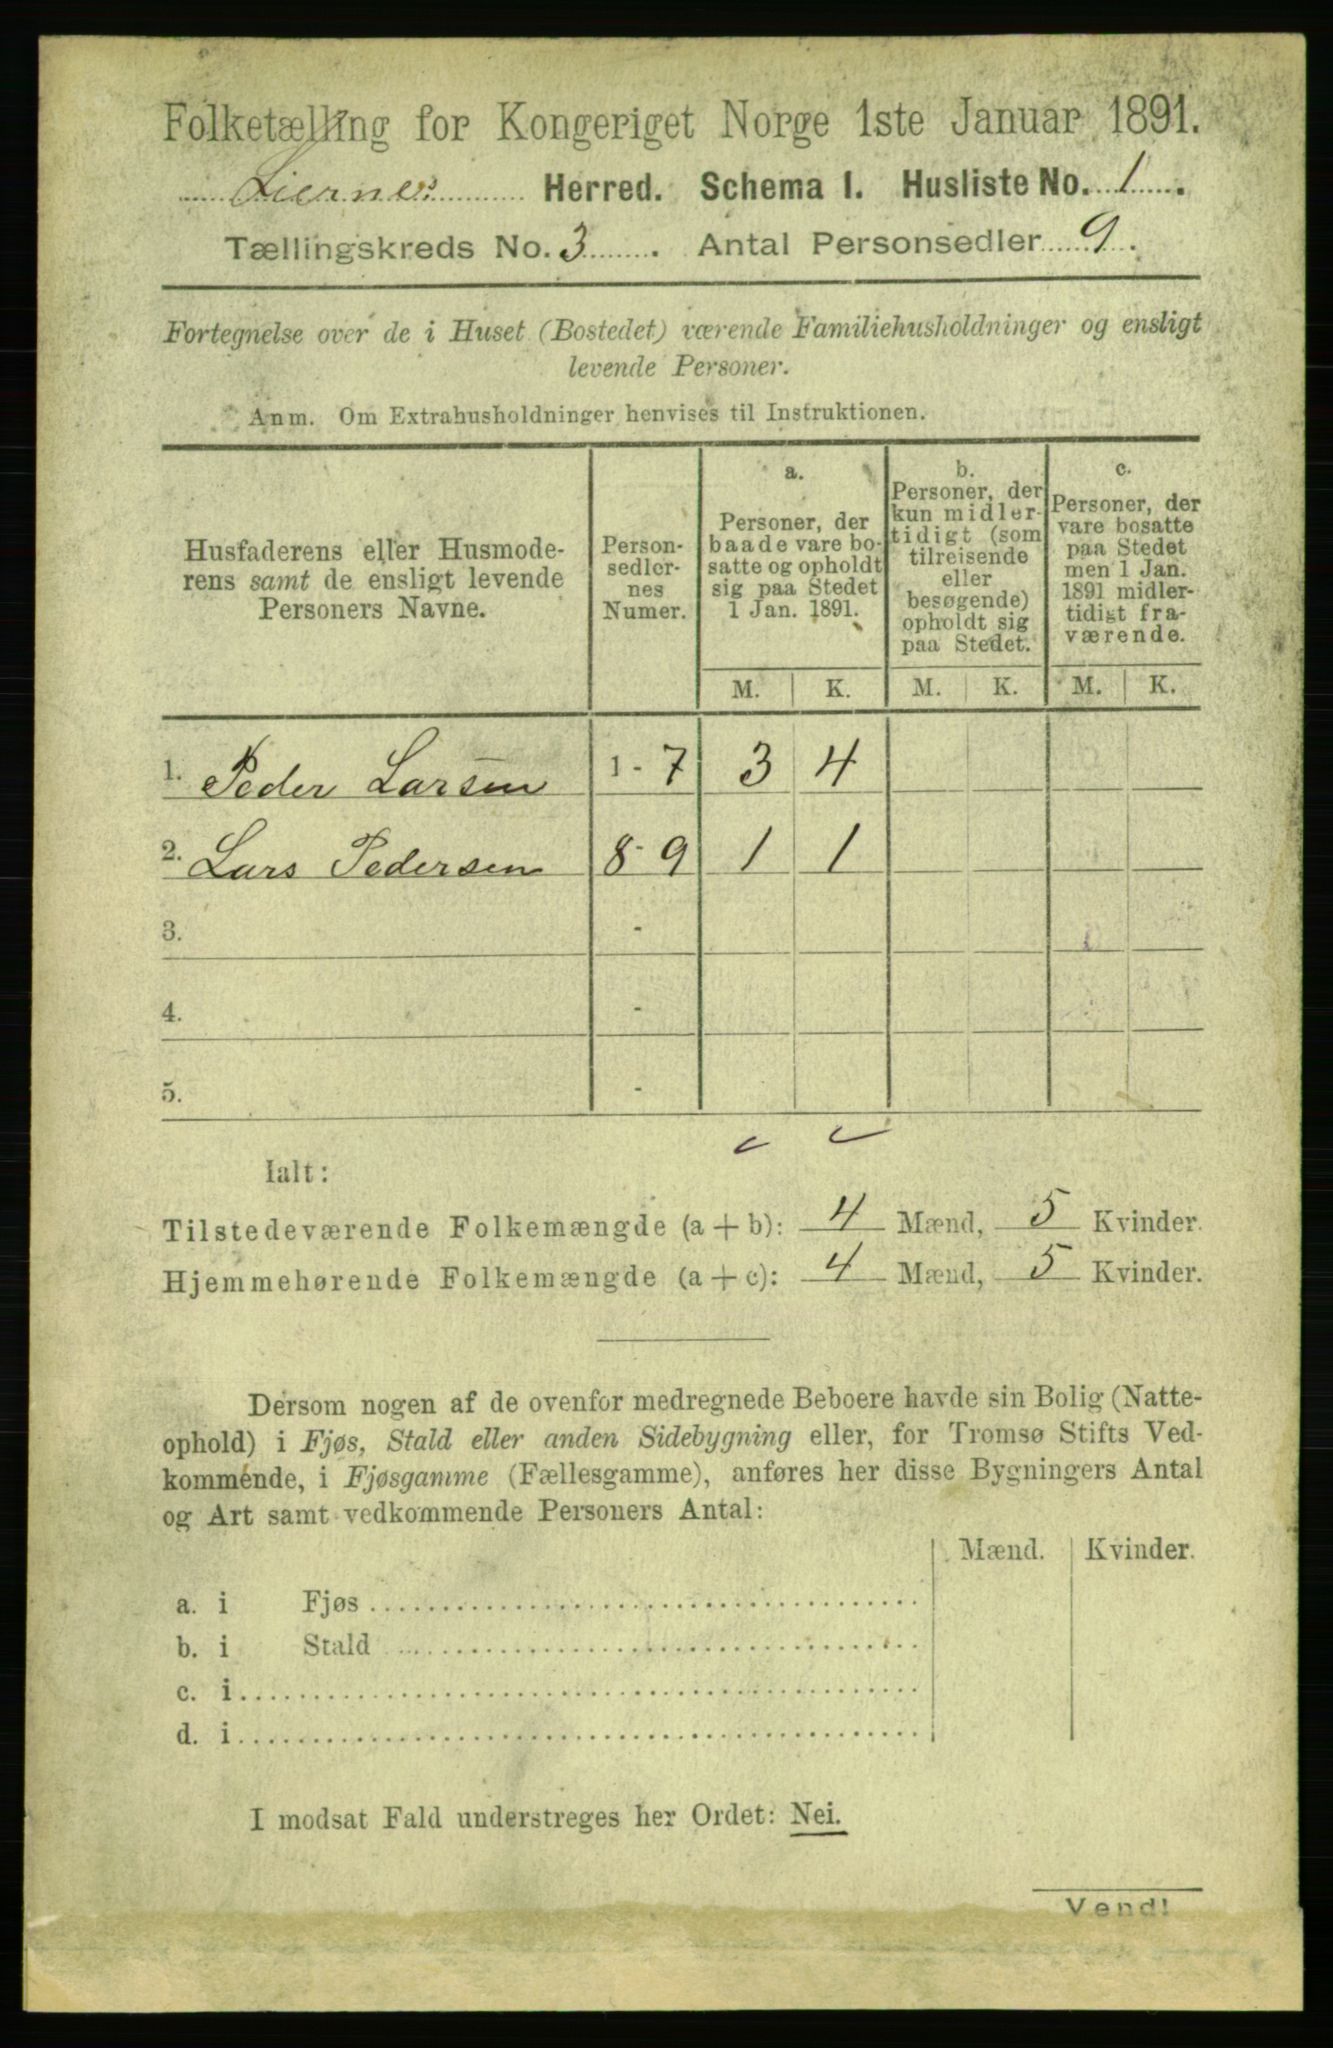 Folketælling for Kongeriget Norge 1ste Januar 1891.
Liernes Herred. Schema I. Husliste No. 1.
Tællingskreds No. 3. Antal Personsedler 9.
Fortegnelse over de i Huset (Bostedet) værende Familiehusholdninger og ensligt
levende Personer.
Anm. Om Extrahusholdninger henvises til Instruktionen.
Husfaderens eller Husmode-
rens samt de ensligt levende
Personers Navne.
Person-
sedler-
nes
Numer.
a.
Personer, der
baade vare bo-
satte og opholdt
sig paa Stedet
1 Jan. 1891.
b.
Personer, der
kun midler-
tidigt (som
tilreisende
eller
besøgende)
opholdt sig
paa Stedet.
c.
Personer, der
vare bosatte
paa Stedet
men 1 Jan.
1891 midler-
tidigt fra-
værende.
M. K. M. K. M. K.
1. Peder Larsen 1 - 7 3 4
2. Lars Pedersen 8 - 9 1 1
3. -
4. -
5. -
Ialt:
Tilstedeværende Folkemængde (a + b): 4 Mænd, 5 Kvinder.
Hjemmehørende Folkemængde (a + c): 4 Mænd, 5 Kvinder.
Dersom nogen af de ovenfor medregnede Beboere havde sin Bolig (Natte-
ophold) i Fjøs, Stald eller anden Sidebygning eller, for Tromsø Stifts Ved-
kommende, i Fjøsgamme (Fællesgamme), anføres her disse Bygningers Antal
og Art samt vedkommende Personers Antal:
Mænd. Kvinder.
a. i Fjøs
b. i Stald
c. i
d. i
I modsat Fald understreges her Ordet: Nei.
Vend!